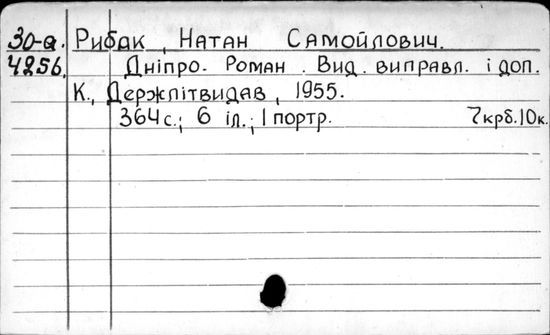 30-а. Рибак, Натан Самойлович.
4256. Дніпро. Роман. Вид. виправл. і доп.
К., Держлітвидав, 1955.
364 с.; 6 іл.; 1 портр. 7 крб. 10 к.